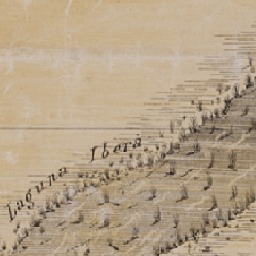 Laguna Iberá